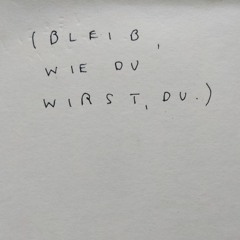 (BLEIB,
WIE DU
WIRST, DU.)